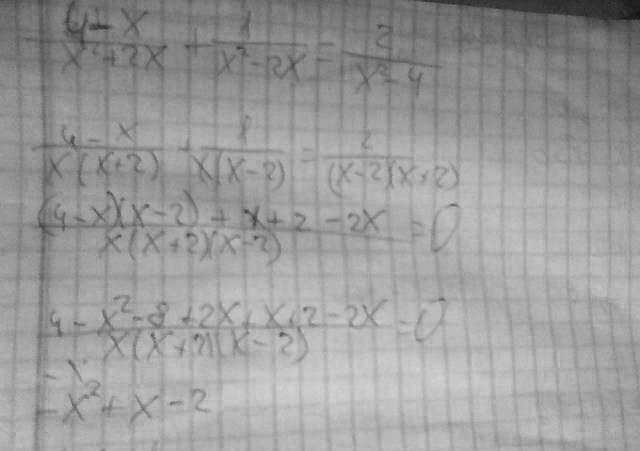 (4-x)/(x²+2x) + 1/(x²-2x) = 2/(x²-4)
(4-x)/(x(x+2)) + 1/(x(x-2)) = 2/((x-2)(x+2))
((4-x)(x-2)+x+2-2x)/(x(x+2)(x-2)) = 0
(4-x²-8+2x+x+2-2x)/(x(x+2)(x-2)) = 0
-x²+x-2